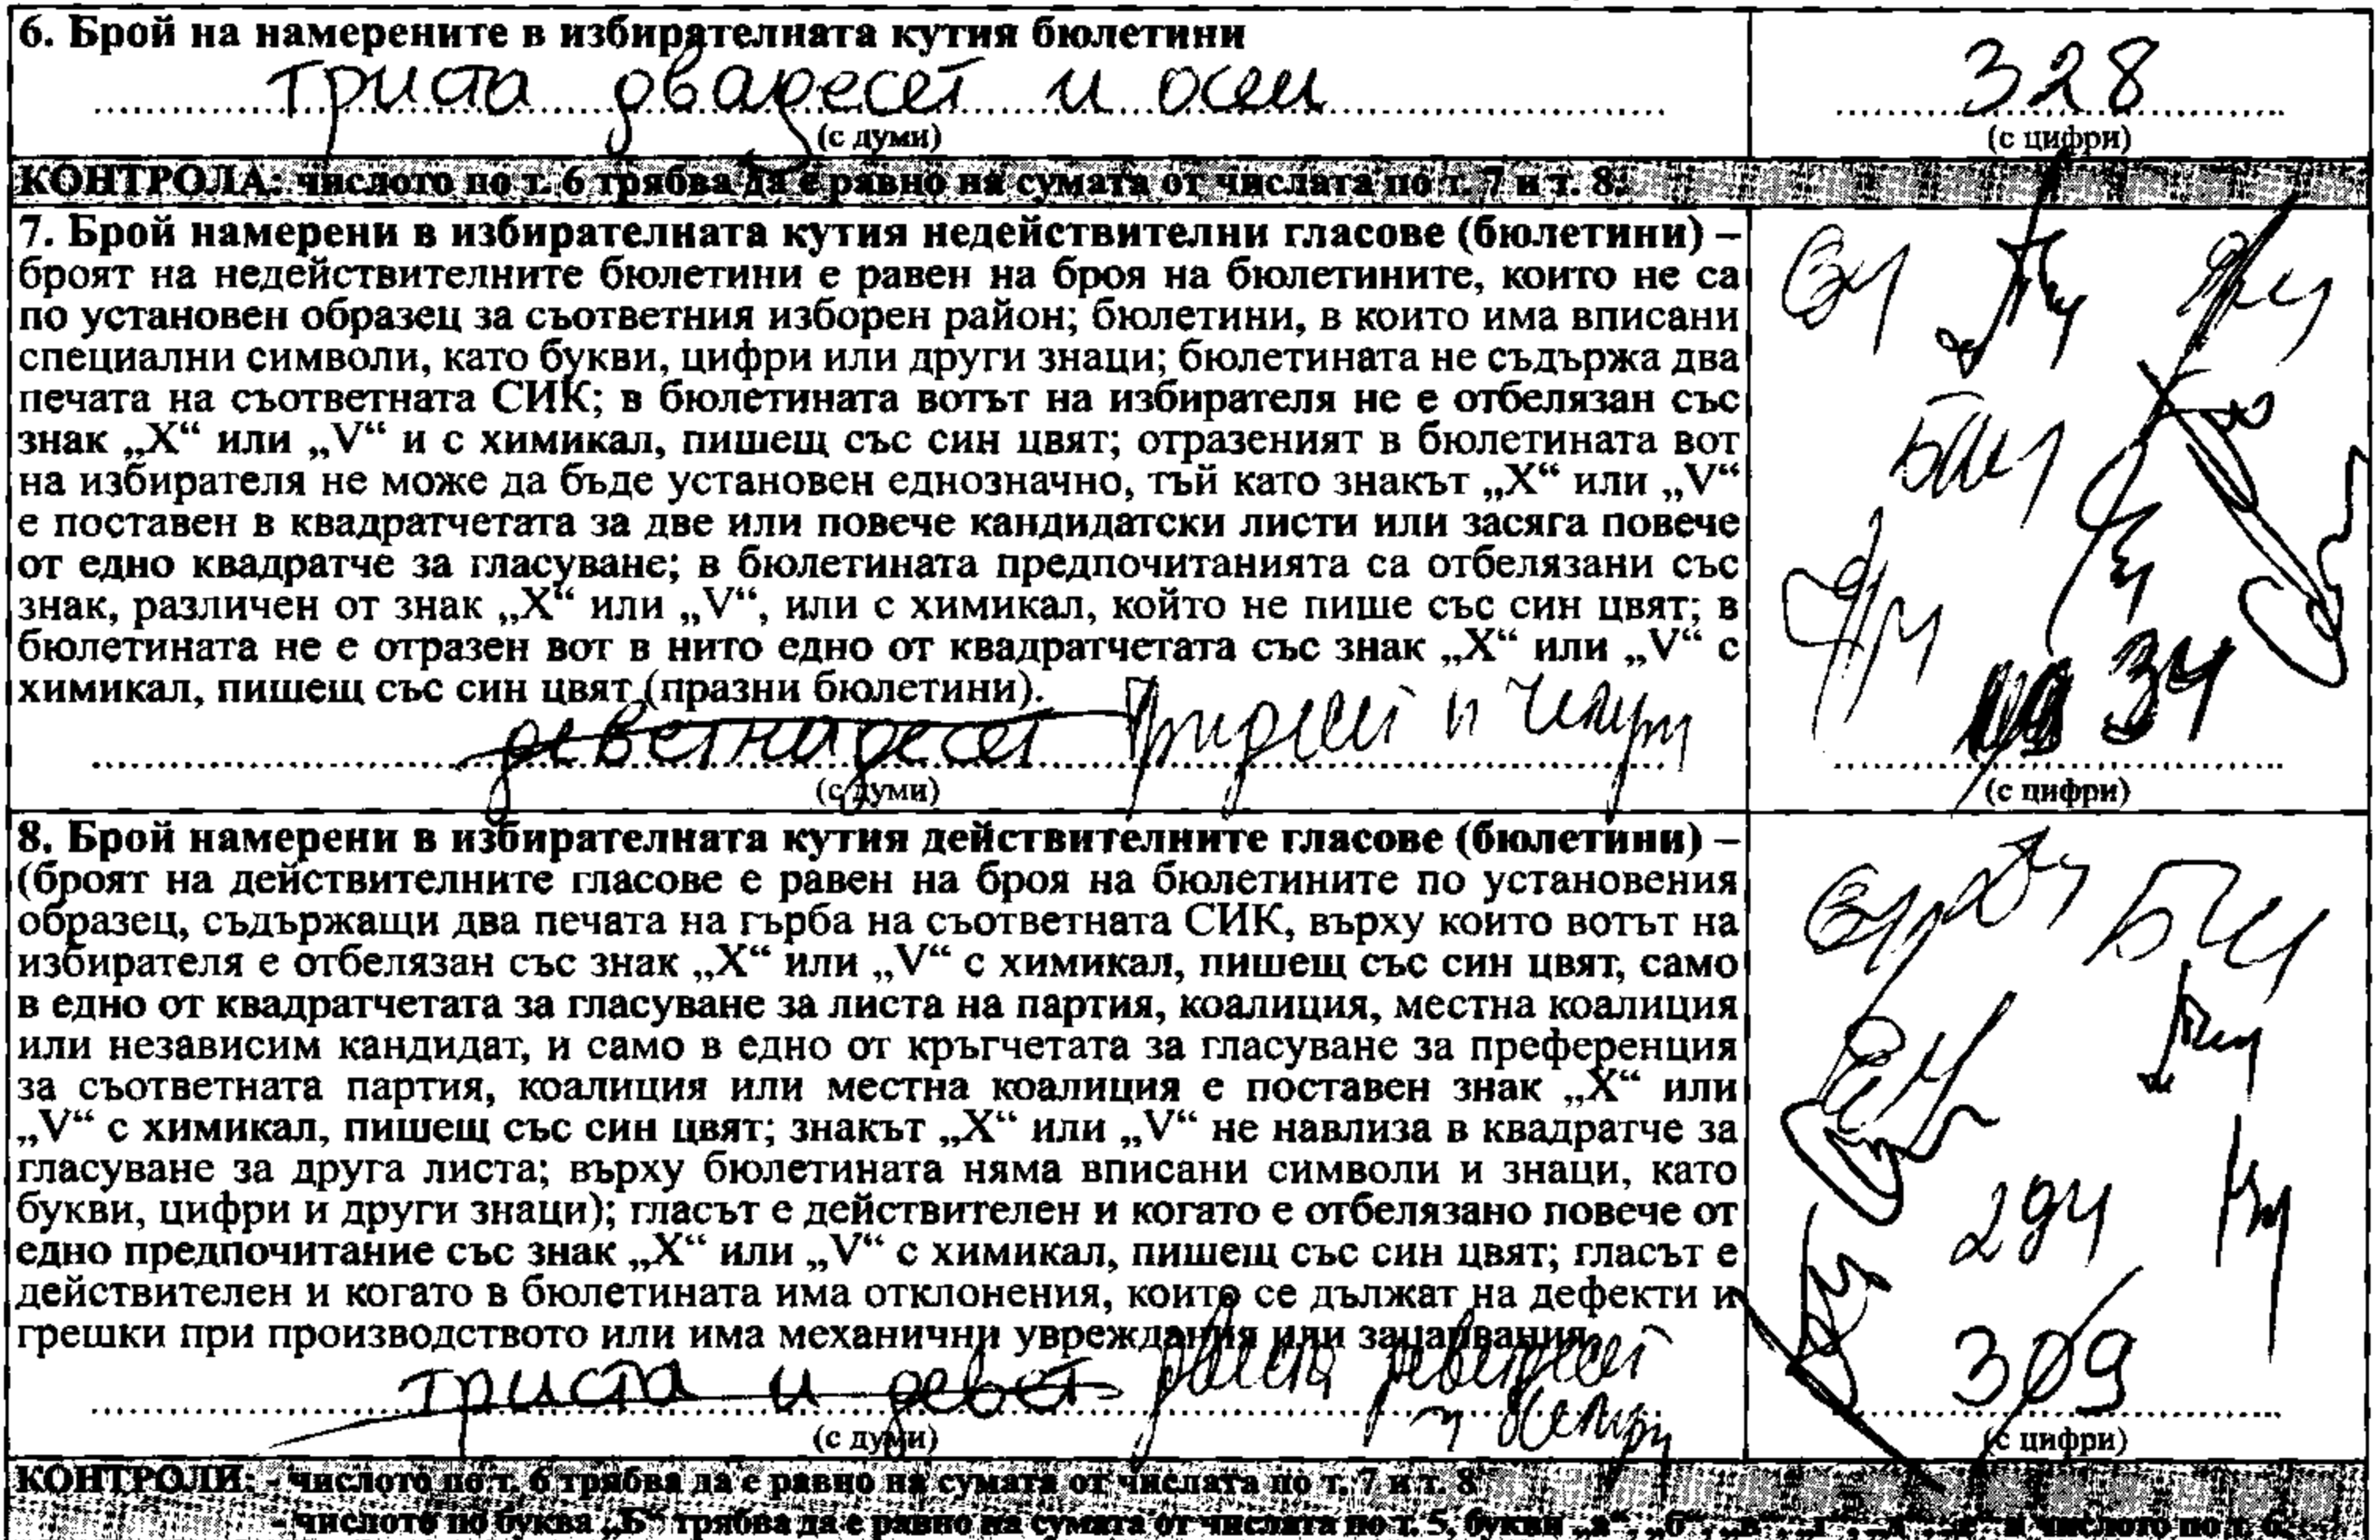 6. Брой на намерените в избирателната кутия бюлетини
триста двадесет и осем
328
(с думи)
(с цифри)
КОНТРОЛА: числото по т. 6 трябва да е равно на сумата от числата по т. 7 и т. 8.
7. Брой намерени в избирателната кутия недействителни гласове (бюлетини) –
броят на недействителните бюлетини е равен на броя на бюлетините, които не са
по установен образец за съответния изборен район; бюлетини, в които има вписани
специални символи, като букви, цифри или други знаци; бюлетината не съдържа два
печата на съответната СИК; в бюлетината вотът на избирателя не е отбелязан със
знак „X“ или „V“ и с химикал, пишещ със син цвят; отразеният в бюлетината вот
на избирателя не може да бъде установен еднозначно, тъй като знакът „X“ или „V“
е поставен в квадратчетата за две или повече кандидатски листи или засяга повече
от едно квадратче за гласуване; в бюлетината предпочитанията са отбелязани със
знак, различен от знак „X“ или „V“, или с химикал, който не пише със син цвят; в
бюлетината не е отразен вот в нито едно от квадратчетата със знак „X“ или „V“ с
химикал, пишещ със син цвят (празни бюлетини).
деветнадесет тридесет и четири
34
(с думи)
(с цифри)
8. Брой намерени в избирателната кутия действителните гласове (бюлетини) –
(броят на действителните гласове е равен на броя на бюлетините по установения
образец, съдържащи два печата на гърба на съответната СИК, върху които вотът на
избирателя е отбелязан със знак „X“ или „V“ с химикал, пишещ със син цвят, само
в едно от квадратчетата за гласуване за листа на партия, коалиция, местна коалиция
или независим кандидат, и само в едно от кръгчетата за гласуване за преференция
за съответната партия, коалиция или местна коалиция е поставен знак „X“ или
„V“ с химикал, пишещ със син цвят; знакът „X“ или „V“ не навлиза в квадратче за
гласуване за друга листа; върху бюлетината няма вписани символи и знаци, като
букви, цифри и други знаци); гласът е действителен и когато е отбелязано повече от
едно предпочитание със знак „X“ или „V“ с химикал, пишещ със син цвят; гласът е
действителен и когато в бюлетината има отклонения, които се дължат на дефекти и
грешки при производството или има механични увреждания или зацапвания.
294
триста и девет двеста деветдесет
и четири
309
(с думи)
(с цифри)
КОНТРОЛИ: - числото по т. 6 трябва да е равно на сумата от числата по т. 7 и т. 8
- числото по буква „Б“ трябва да е равно на сумата от числата по т. 5, букви „а“, „б“, „в“, „г“, „д“, „е“ и числото по т. 6